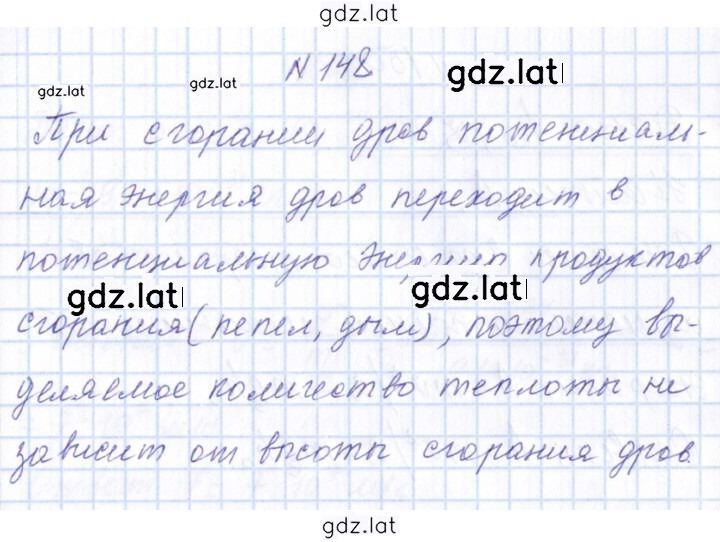 gdz.lat
N 148 gdz.lat
gdz.lat gdz.lat
При сгорании дров потенциаль-
ная энергия дров переходит в
потенциальную энергию продуктов
gdz.lat gdz.lat
сгорания (пепел, дым), поэтому вы-
деляемое количество теплоты не
зависит от высоты сгорания дров.
gdz.lat